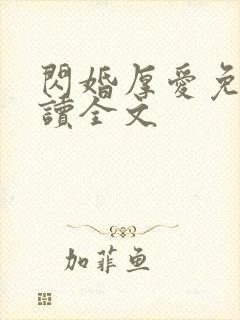 閃婚厚愛免
讀全文
加菲鱼